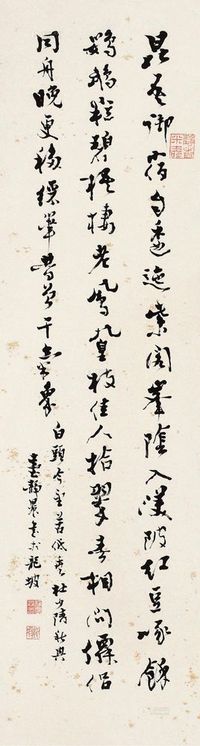 昆吾御宿自逶迤紫閣峯陰入渼陂紅豆啄餘
鸚鵡粒碧梧棲老鳳皇枝佳人拾翠春相問僊侶
同舟晚更移綵筆昔曾干氣象
白頭今望苦低垂杜少陵秋興
臺靜農書於龍坡